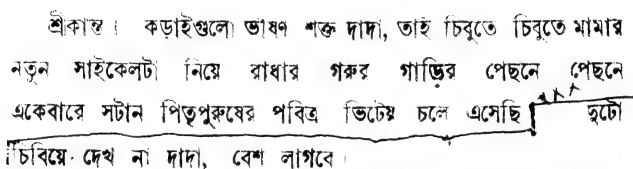 শ্রীকান্ত। কড়াইগুলো ভীষণ শক্ত দাদা, তাই চিবুতে চিবুতে মামার
নতুন সাইকেলটা নিয়ে রাধার গরুর গাড়ির পেছনে পেছনে
একেবারে সটান পিতৃপুরুষের পবিত্র ভিটেয় চলে এসেছি দুটো
চিবিয়ে দেখ না দাদা, বেশ লাগবে।